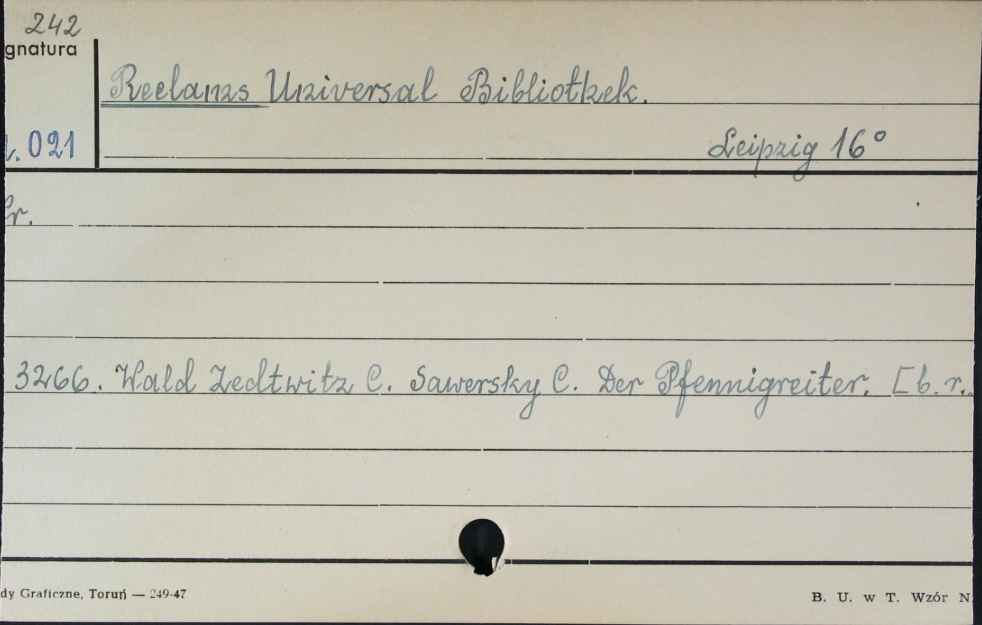 242
gnatura
Reelams Universal Bibliothek.
021
Leipzig 16°
r.
3266. Wald Zedtwitz C. Sawersky C. Der Pfennigreiter. [b.r.
dy Graficzne, Toruń — 249-47
B. U. w T. Wzór N